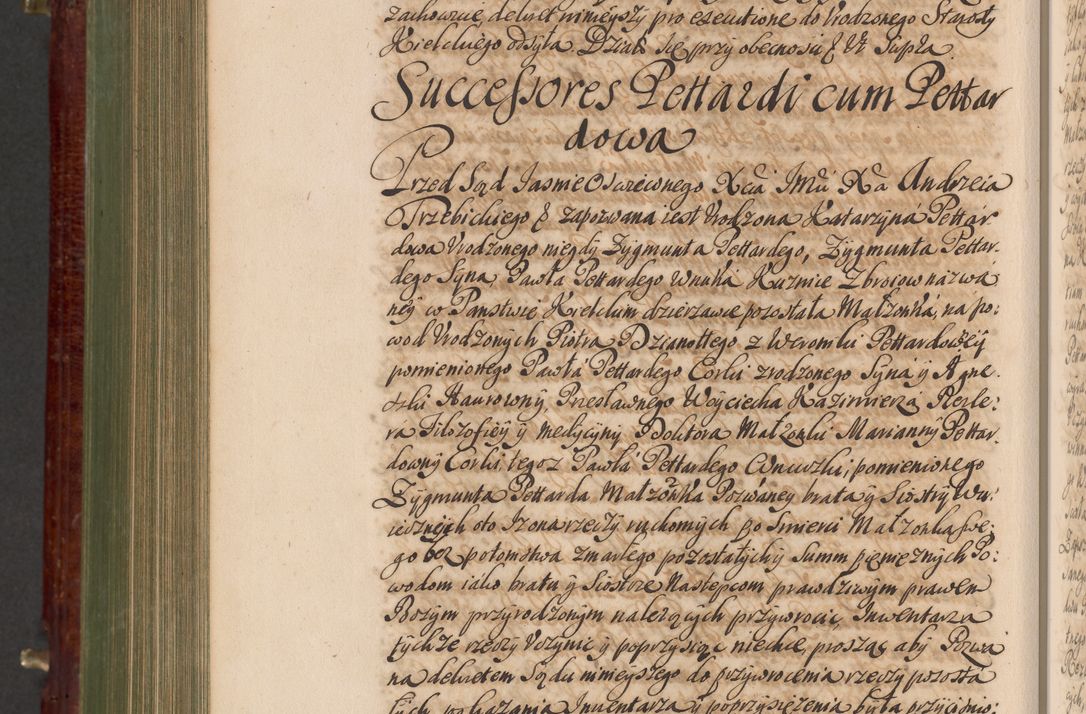 zachowuie, dekret ninieyszy pro executione do Vrodzonego Starosty
Kielckiego odsyła. Działo się przy obecności &
Successores Pettardi cum Pettar
dowa
Przed Sąd Jasnie Oswieconego Xcia JMci Xa Andrzeia
Trzebickiego & zapozwana iest Vrodzona Katarzyna Pettar
dowa Vrodzonego niegdy Zygmunta Pettardego, Zygmunta Pettar-
dego Syna Pawła Pettardego Wnuka Kuznie Zbrorow nazwa
ney w Panstwie Kielckim dzierzawce pozostała Małzonka, na po:
wod Vrodzonych Piotra Dzianottego z Weronki Pettardowey
pomienionego Pawła Pettardego Corki zrodzonego Syna y Agne-
szki Haurowny, Przesławnego Woyciecha Kazimierza Kerle:
ra Filozofiey y Medycyny Doktora Małzonki Marianny Pettar
downy Corki, tegoz Pawła Pettardego Wnuczki, pomienionego
Zygmunta Pettarda Małzonka Pozwaney brata y Siostry Wu:
iecznych oto Iz ona rzeczy ruchomych po Smierci Małzonka swe:
go bez potomstwa zmarłego pozostałych y Summ pieniężnych Po:
wodom iako bratu y Siostrze Następcom prawdziwym prawem
Bozym przyrodzonym nalezących przywrocic, Inwentarza
tychze rzeczy Vczynic y poprzysiąc niechce, prosząc aby Pozwa
na dekretem Sądu ninieyszego do przywrocenia rzeczy pozosta
łych pokazania Inwentarza y poprzysięzenia była przyciśnio: